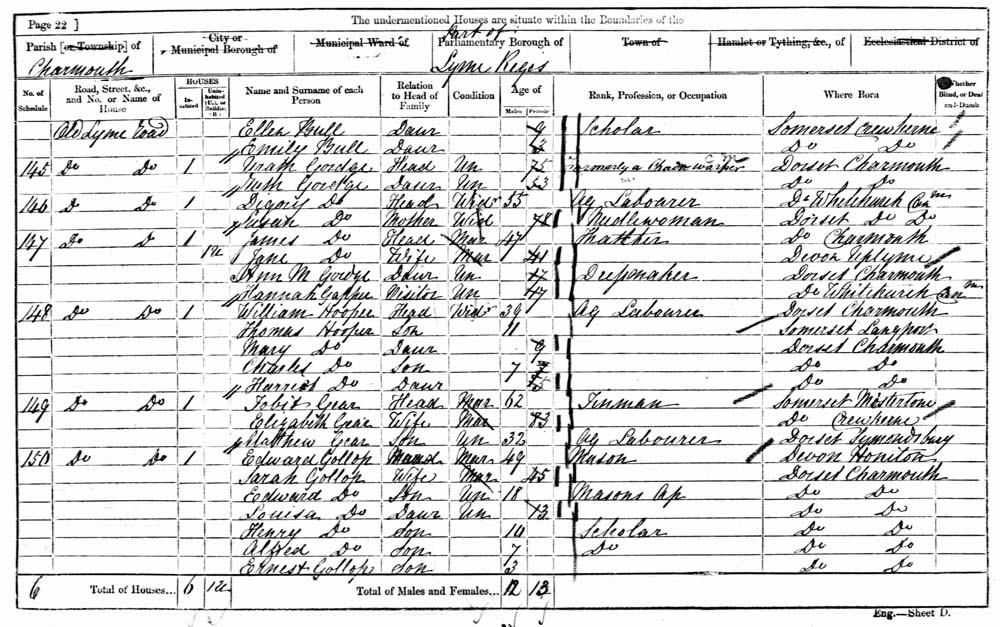 Page 22 ]
The undermentioned Houses are situate within the Boundaries of the
Parish [or Township] of
Charmouth
City or Municipal Borough of
Municipal Ward of
Part of
Parliamentary Borough of
Lyme Regis
Town of
Hamlet or Tything, &c., of
Ecclesiastical District of
No. of Schedule
Road, Street, &c., and No. or Name of House
HOUSES
Inhabited
Uninhabited (U.), or Building (B.)
Name and Surname of each Person
Relation to Head of Family
Condition
Age of
Males
Females
Rank, Profession, or Occupation
Where Born
Whether Blind, or Deaf-and-Dumb
Old Lyme Road Ellen Bull Daur 9 Scholar Somerset Crewkerne
Emily Bull Daur Do Do
145 Do Do 1 Gordge Head Un 75 Formerly a Dorset Charmouth
Ruth Gordge Daur Un 53 Do Do
146 D Do 1 Digory Do Head Widr 55 Ag Labourer Do Whitchurch Canm
Susan Do Mother Wid 78 Needlewoman Dorset Do Do
147 Do D 1 James Do Head Mar 47 Thatcher Do Charmouth
1u Jane Do Wife Mar 41 Devon Uplyme
Ann M Daur Un 17 Dorset Charmouth
Hannah Gapper Visitor Un 47 Do Whitchurch Canm
148 Do Do 1 William Hooper Head Widr 39 Ag Labourer Dorset Charmouth
Thomas Hooper Son 11 Somerset Langport
Mary Do Daur 9 Dorset Charmouth
Charles Do Son 7 Do Do
Harriet Do Daur 5 Do Do
149 Do Do 1 Tobit Gear Head Mar 62 Tinman Somerset Mosterton
Elizabeth Gear Wife Mar 63 Do Crewkerne
Matthew Gear Son Un 32 Ag Labourer Dorset Symondsbury
150 Do Do 1 Edward Gollop Head Mar 49 Mason Devon Honiton
Sarah Gollop Wife Mar 45 Dorset Charmouth
Edward Do Son Un 18 Masons Ap Do Do
Louisa Do Daur Un 13 Do Do
Henry Do Son 10 Scholar Do Do
Alfred Do Son 7 Do Do Do
Ernest Gollop Son 3 Do Do
6 Total of Houses... 6 1u Total of Males and Females... 12 13
Eng.—Sheet D.